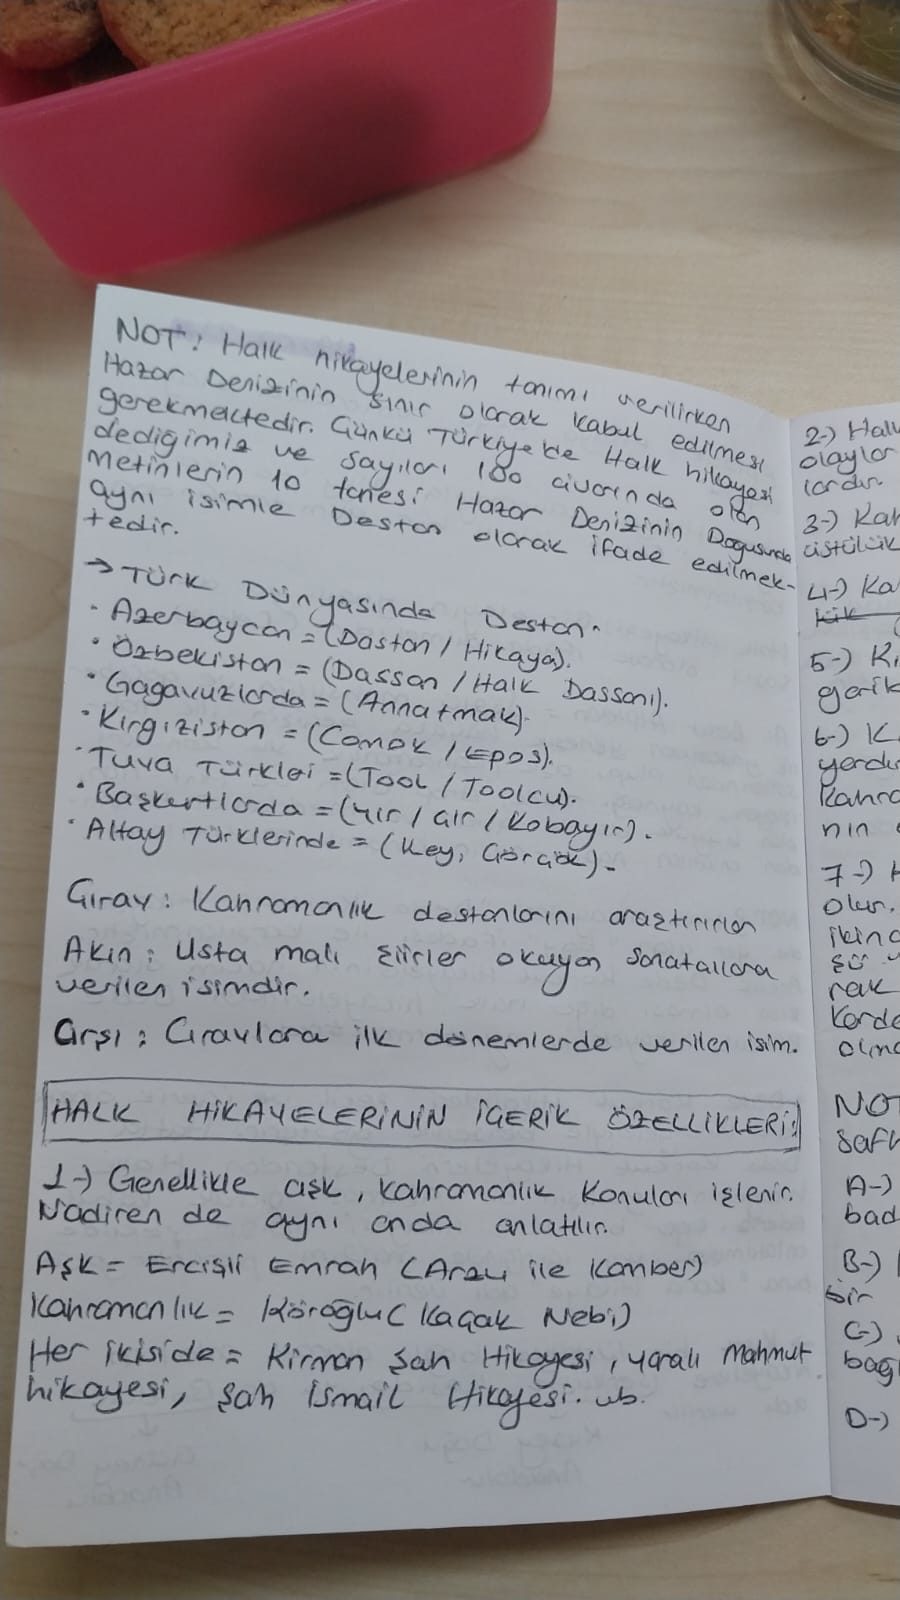 NOT: Halk hikayelerinin tanımı verilirken
Hazar Denizinin sınır olarak kabul edilmesi
gerekmektedir. Günkü Türkiye'de Halk hikayesi
dediğimiz ve sayıları 100 civarında olan
metinlerin 10 tanesi Hazar Denizinin Doğusunda
aynı isimle Destan olarak ifade edilmek-
tedir.
→ Türk Dünyasında Destan.
• Azerbaycan = (Dastan / Hikaya).
• Özbekistan = (Dassan / Halk Dassanı).
• Gagavuzlarda = (Annatmak).
• Kırgızistan = (Comok / Epos).
• Tuva Türkleri = (Tool / Toolcu).
• Başkurtlarda = (Yır / Gir / Kobayır).
• Altay Türklerinde = (Key, Görçök).
Giray: Kahramanlık destanlarını araştırırlar
Akın: Usta malı şiirler okuyan sanatallara
verilen isimdir.
Arşı: Giravlara ilk dönemlerde verilen isim.
HALK HİKAYELERİNİN İÇERİK ÖZELLİKLERİ:
1-) Genellikle aşk, kahramanlık konuları işlenir.
Nadiren de aynı anda anlatılır.
Aşk = Ercişli Emrah (Arzu ile Kamber)
Kahramanlık = Köroğlu (Kaçak Nebi)
Her ikiside = Kirman Şah Hikayesi, yaralı Mahmut
hikayesi, Şah İsmail Hikayesi. vb.
2-) Halk
olaylar
lardır.
3-) Kah
üstülük
4-) Ka
5-) Kı
gerik
6-) K
yerdı
Kahra
nin
7-) H
olur.
ikinc
rak
olma
NOT
Safh
A-)
bad
B-)
bir
C-)
bağ
D-)